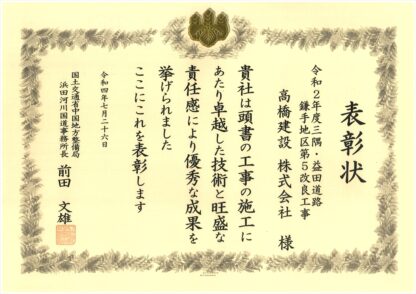 表彰状
令和2年度三隅・益田道路
鎌手地区第5改良工事
高橋建設 株式会社 様
貴社は頭書の工事の施工に
あたり卓越した技術と旺盛な
責任感により優秀な成果を
挙げられました
ここにこれを表彰します
令和四年七月二十六日
国土交通省中国地方整備局
浜田河川国道事務所長 前田 文雄